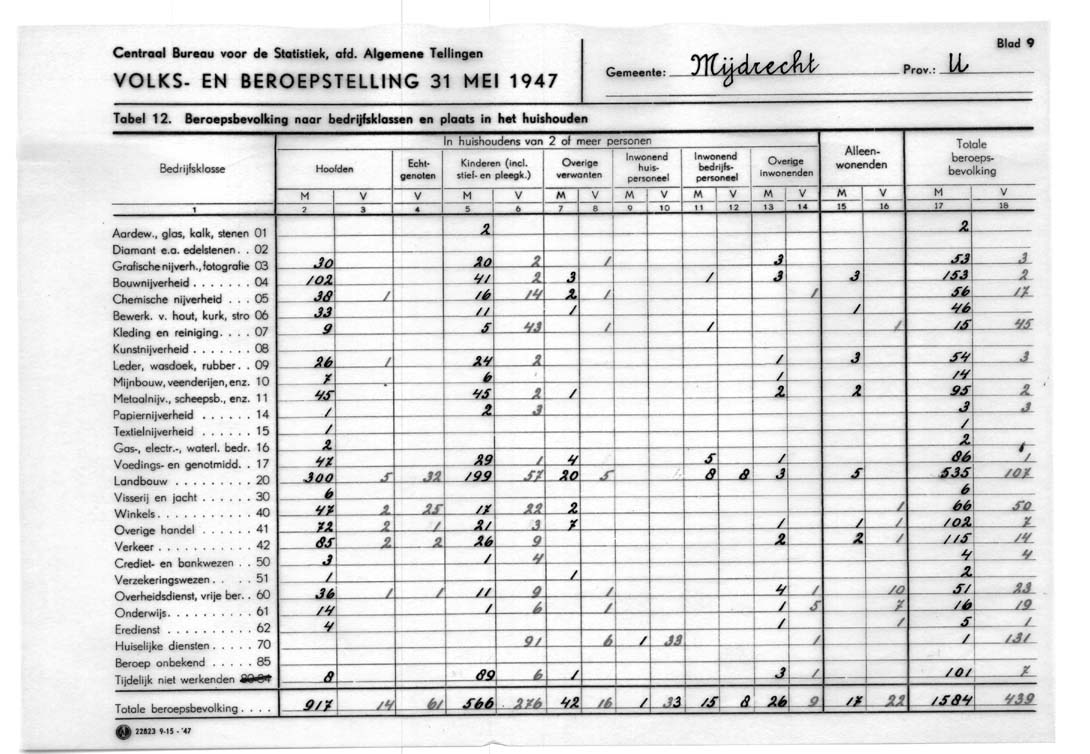 Centraal Bureau voor de Statistiek, afd. Algemene Tellingen
VOLKS- EN BEROEPSTELLING 31 MEI 1947
Gemeente: Mijdrecht Prov.: U
Blad 9
Tabel 12. Beroepsbevolking naar bedrijfsklassen en plaats in het huishouden
Bedrijfsklasse
In huishoudens van 2 of meer personen
Hoofden
Echt-
genoten
Kinderen (incl.
stief- en pleegk.)
Overige
verwanten
Inwonend
huis-
personeel
Inwonend
bedrijfs-
personeel
Overige
inwonenden
Alleen-
wonenden
Totale
beroeps-
bevolking
M V V M V M V M V M V M V M V M V
1 2 3 4 5 6 7 8 9 10 11 12 13 14 15 16 17 18
Aardew., glas, kalk, stenen 01 2 2
Diamant e.a. edelstenen . . 02
Grafische nijverh., fotografie 03 30 20 2 1 3 53 3
Bouwnijverheid . . . . . . . 04 102 41 2 3 1 3 3 153 2
Chemische nijverheid . . . 05 38 1 16 14 2 1 1 56 17
Bewerk. v. hout, kurk, stro 06 33 11 1 1 46
Kleding en reiniging. . . . 07 9 5 43 1 1 1 15 45
Kunstnijverheid . . . . . . . 08
Leder, wasdoek, rubber. . 09 26 1 24 2 1 3 54 3
Mijnbouw, veenderijen, enz. 10 7 6 1 14
Metaalnijv., scheepsb., enz. 11 45 45 2 1 2 2 95 2
Papiernijverheid . . . . . . 14 1 2 3 3 3
Textielnijverheid . . . . . . 15 1 1
Gas-, electr.-, waterl. bedr. 16 2 2
Voedings- en genotmidd. . 17 47 29 1 4 5 1 86 1
Landbouw . . . . . . . . . . 20 300 5 32 199 57 20 5 8 8 3 5 535 107
Visserij en jacht . . . . . . 30 6 6
Winkels . . . . . . . . . . . 40 47 2 25 17 22 2 1 66 50
Overige handel . . . . . . . 41 72 2 1 21 3 7 1 1 1 102 7
Verkeer . . . . . . . . . . . 42 85 2 2 26 9 2 2 1 115 14
Crediet- en bankwezen . . 50 3 1 4 4 4
Verzekeringswezen . . . . 51 1 1 2
Overheidsdienst, vrije ber. . 60 36 1 1 11 9 1 4 1 10 51 23
Onderwijs. . . . . . . . . . 61 14 1 6 1 1 5 7 16 19
Eredienst . . . . . . . . . . 62 4 1 1 5 1
Huiselijke diensten . . . . . 70 91 6 1 33 1 1 131
Beroep onbekend . . . . . 85
Tijdelijk niet werkenden 80-84 8 89 6 1 3 1 101 7
Totale beroepsbevolking . . . . 917 14 61 566 276 42 16 1 33 15 8 26 9 17 22 1584 439
22823 9-15 - '47